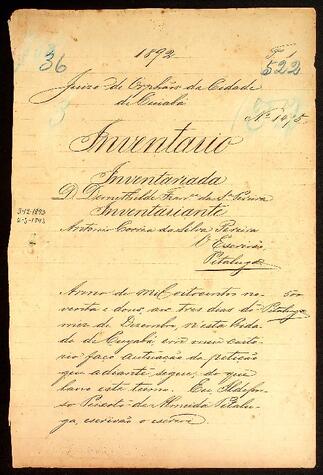 1892
36
Fl 1
522
Juizo de Orphãos da Cidade
de Cuyabá
Nº 1495
Inventario
Inventariada
D. Demethilde Franca da Sª Pereira
Inventariante
3-12-1892
Antonio Corrêa da Silva Pereira
O Escrivão
Pitaluga
Anno de mil oitocentos no-
venta e dous, aos tres dias do
Pitaluga
mez de Dezembro, n'esta Cida-
de de Cuyabá em meu carto-
rio faço autuação da petição
que adiante segue; do que
lavro este termo. Eu Ildefon-
so Peixoto de Almeida Pitalu-
ga, escrivão o escrevi